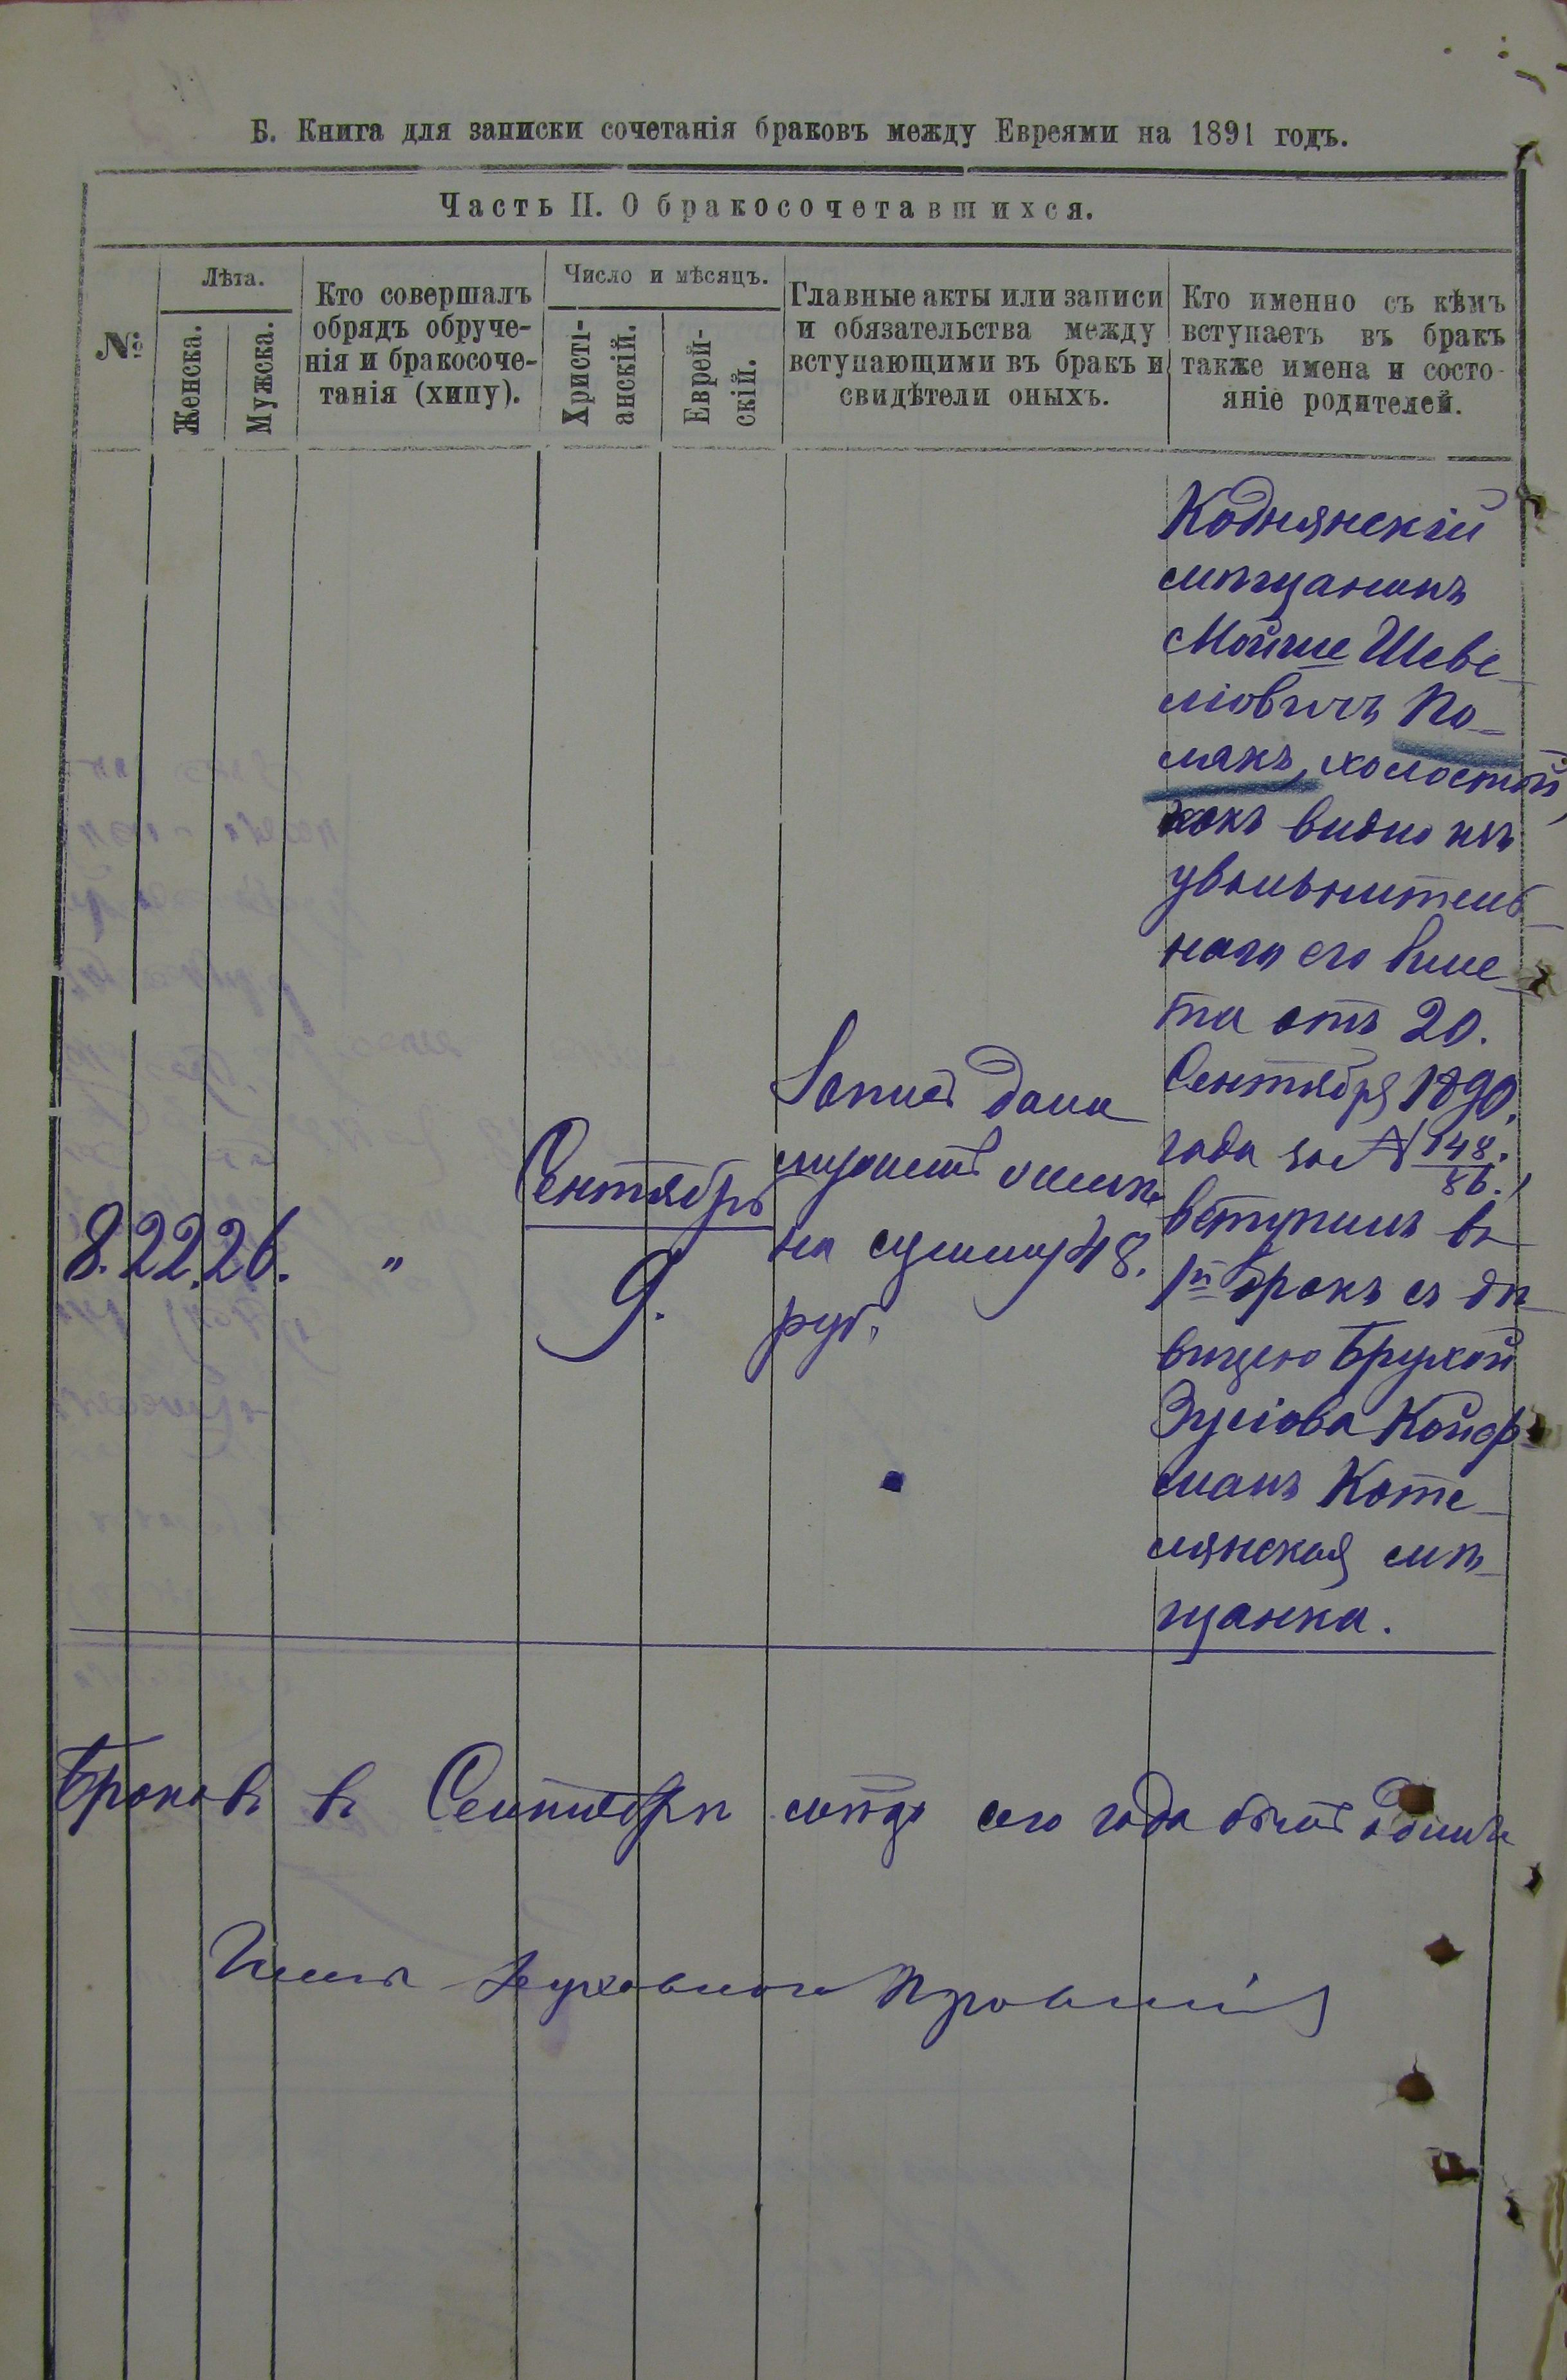 Б. Книга для записки сочетанія браковъ между Евреями на 1891 годъ.
Часть II. О бракосочетавшихся.
№
Лѣта.
Женска.
Мужска.
Кто совершалъ
обрядъ обруче-
нія и бракосоче-
танія (хипу).
Число и мѣсяцъ.
Христі-
анскій.
Еврей-
скій.
Главные акты или записи
и обязательства между
вступающими въ бракъ и
свидѣтели оныхъ.
Кто именно съ кѣмъ
вступаетъ въ бракъ
также имена и состо-
яніе родителей.
8. 22. 26. "
Сентябрь
9.
Запись дана
на сумму 48.
руб.
Коднянскій
мѣщанинъ
Мойше Шеве-
ліовичъ По-
лякъ, холостой,
какъ видно изъ
увольнитель-
наго его биле-
та отъ 20.
Сентября 1890.
года за № 148./86.,
вступилъ въ
1й бракъ съ дѣ-
вицею Брухой
Зусіова Койф-
манъ Коте-
лянская мѣ-
щанка.
Браковъ въ Сентябрѣ мѣцѣ сего года былъ одинъ
Члены Духовного Правленія